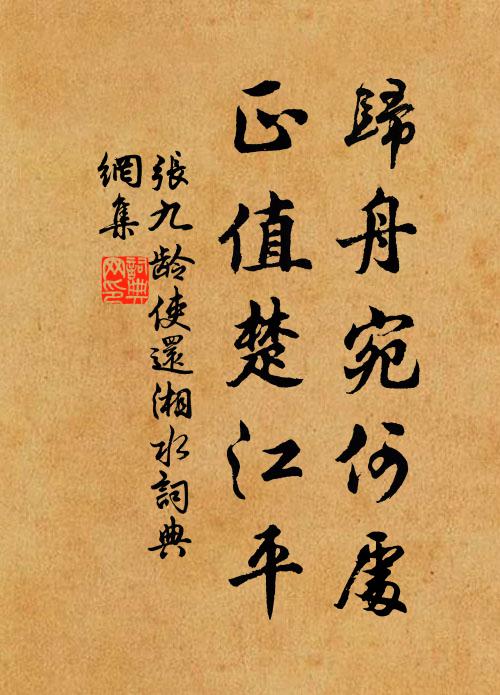 歸舟宛何處
正值楚江平
張九齡使還湘水詞典
網集
詞典網印